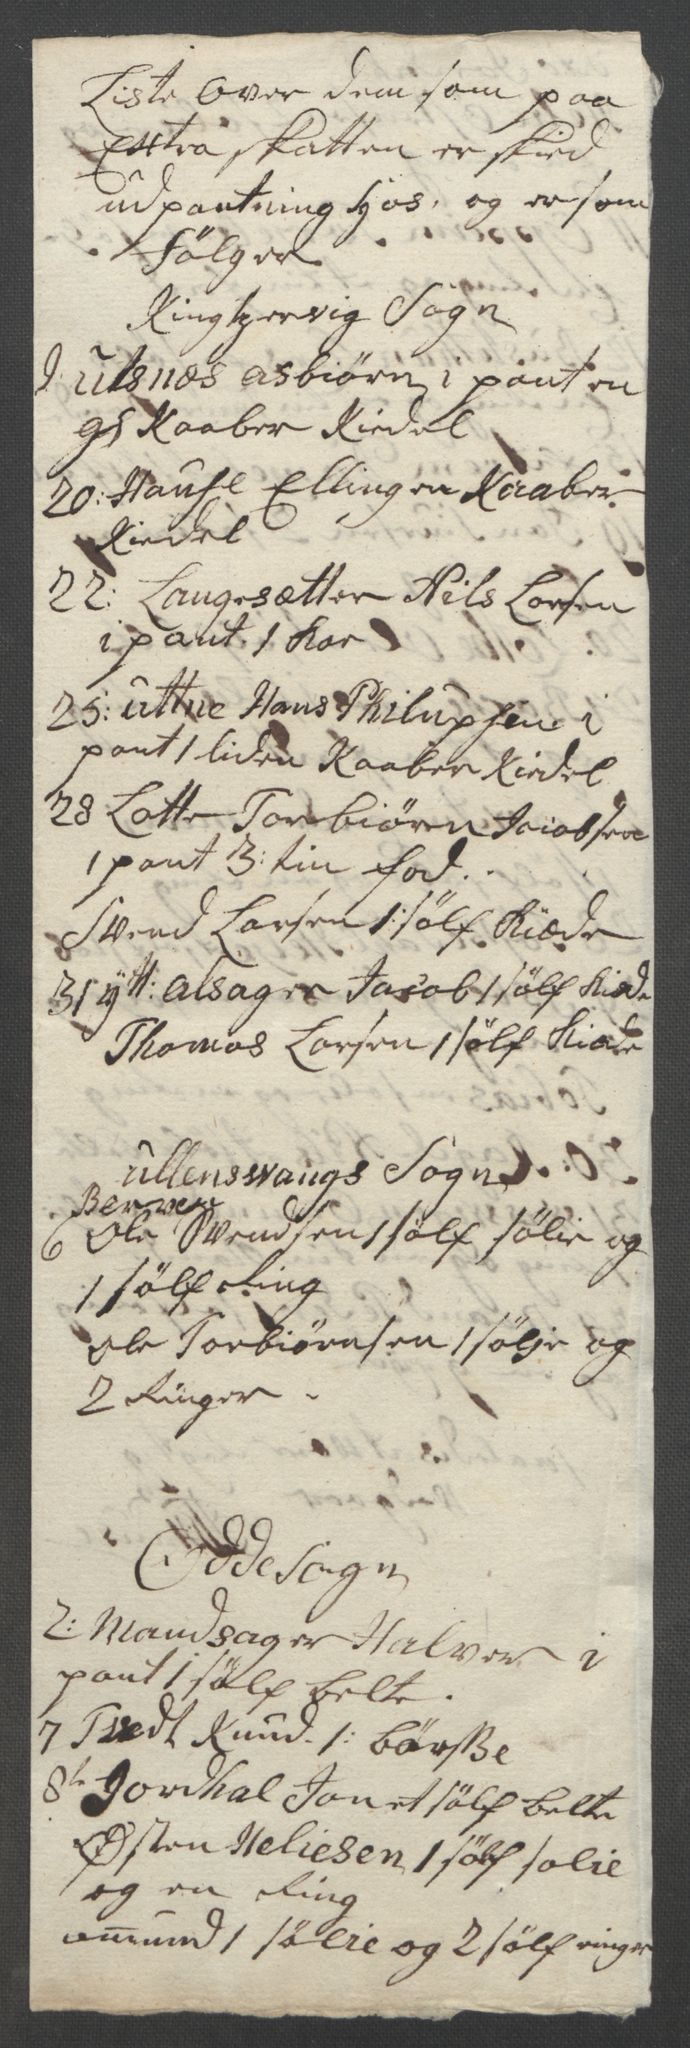 Liste Over dem som paa
Extra skatten er skied
udpantning hos, og er som
Følger
Kinghzervig Sogn
Utsnæs asbiørn i pant en
Kaaber Kiedel
20: Hause Ellingen Kaaber
Kiedel
22: Langesætter Nils Larsen
i pant 1 Koe
25: uttne Hans Philupsen i
pant 1 liden Kaaber Kiedel
28 Lotte Torbiøren Jacobsen
i pant 3: tin fad.
Svend Larsen 1: sølf Kiæde
31 ÿtt: alsager Jacob 1 sølf Kiæde
Thomas Larsen 1 sølf Kiæde
ullensvangs Sogn
Berven
6 Ole Svendsen 1 sølf sølie og
1 sølf Ring
Ole Torbiørnsen 1 sølje og
2 Ringer
Odde Sogn
2: Mandsager Halver i
pant 1 sølf belte.
7 Tvedt Knud 1: børsse
8de Jordhal Jon et sølf belte
Østen Heliesen 1 sølf solie
og en Ring
amund 1 sølie og 2 sølf ringer